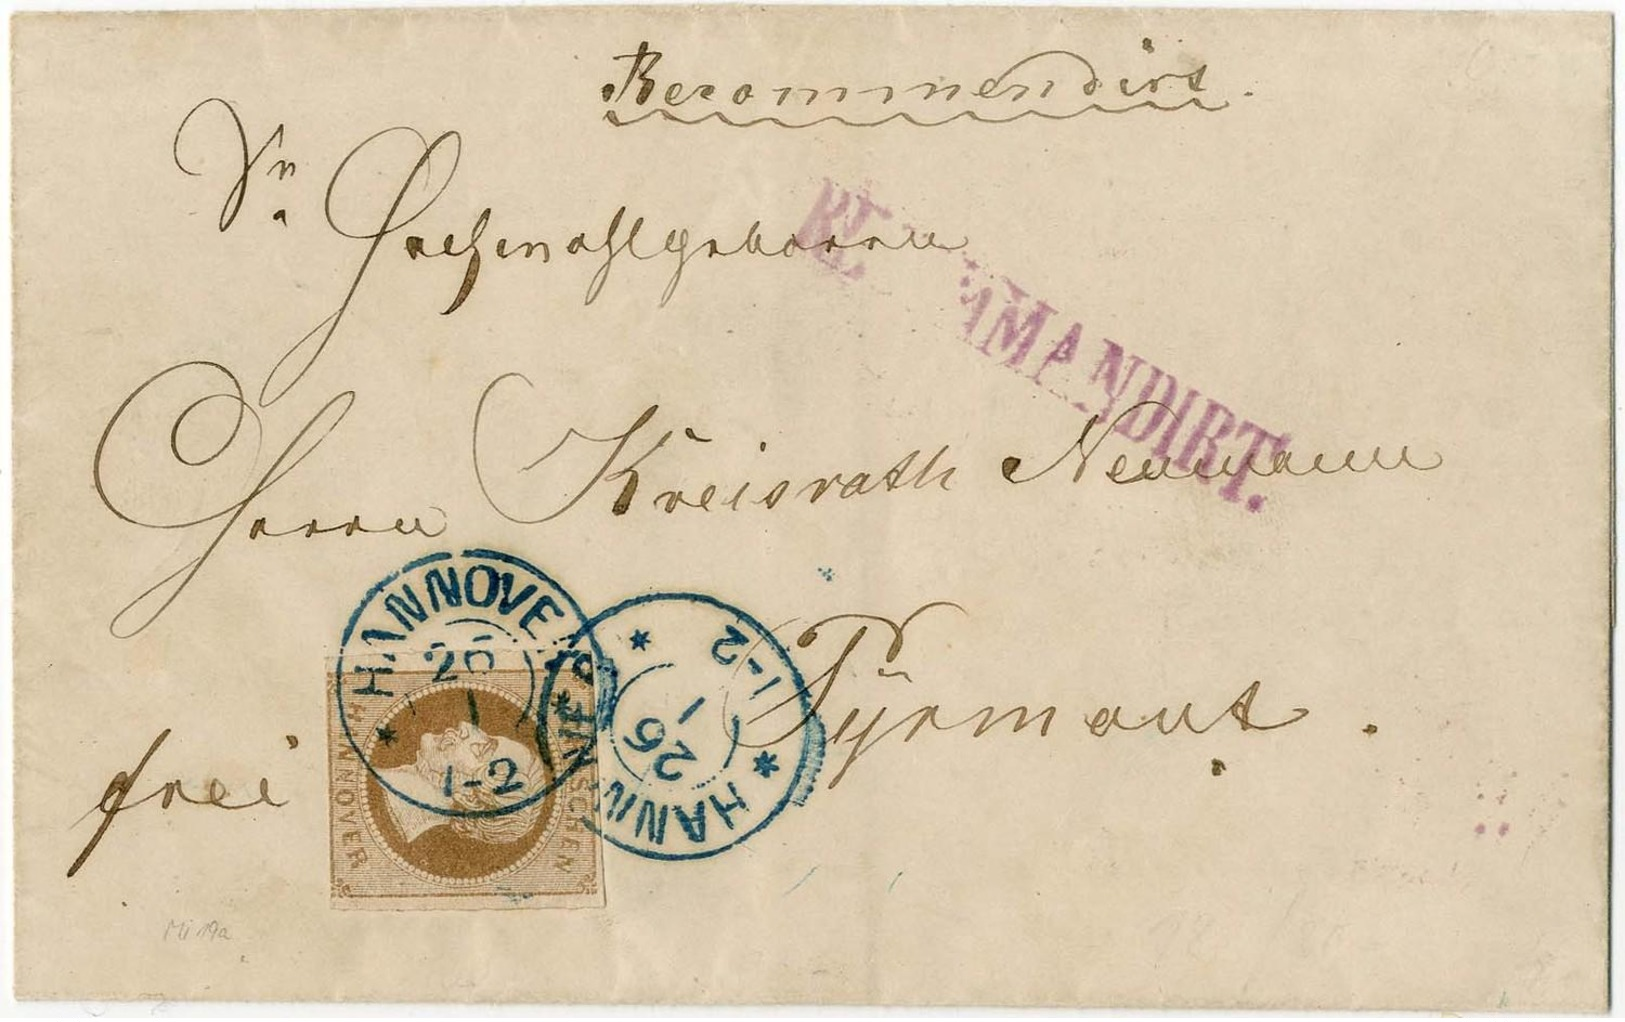 Recommendirt.
Sr. Hochwohlgeboren
RECOMMANDIRT.
Herrn Kreisrath Neumann
Pyrmont.
frei
HANNOVER
26
1
1-2
HANNOVER
26
1
1-2
HANNOVER
SCHEN
Mi 19a